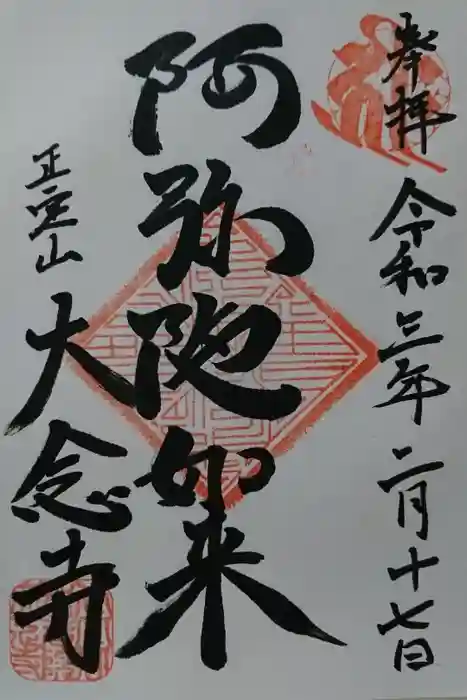 奉拝
令和三年二月十七日
阿弥陀如来
正定山
大念寺